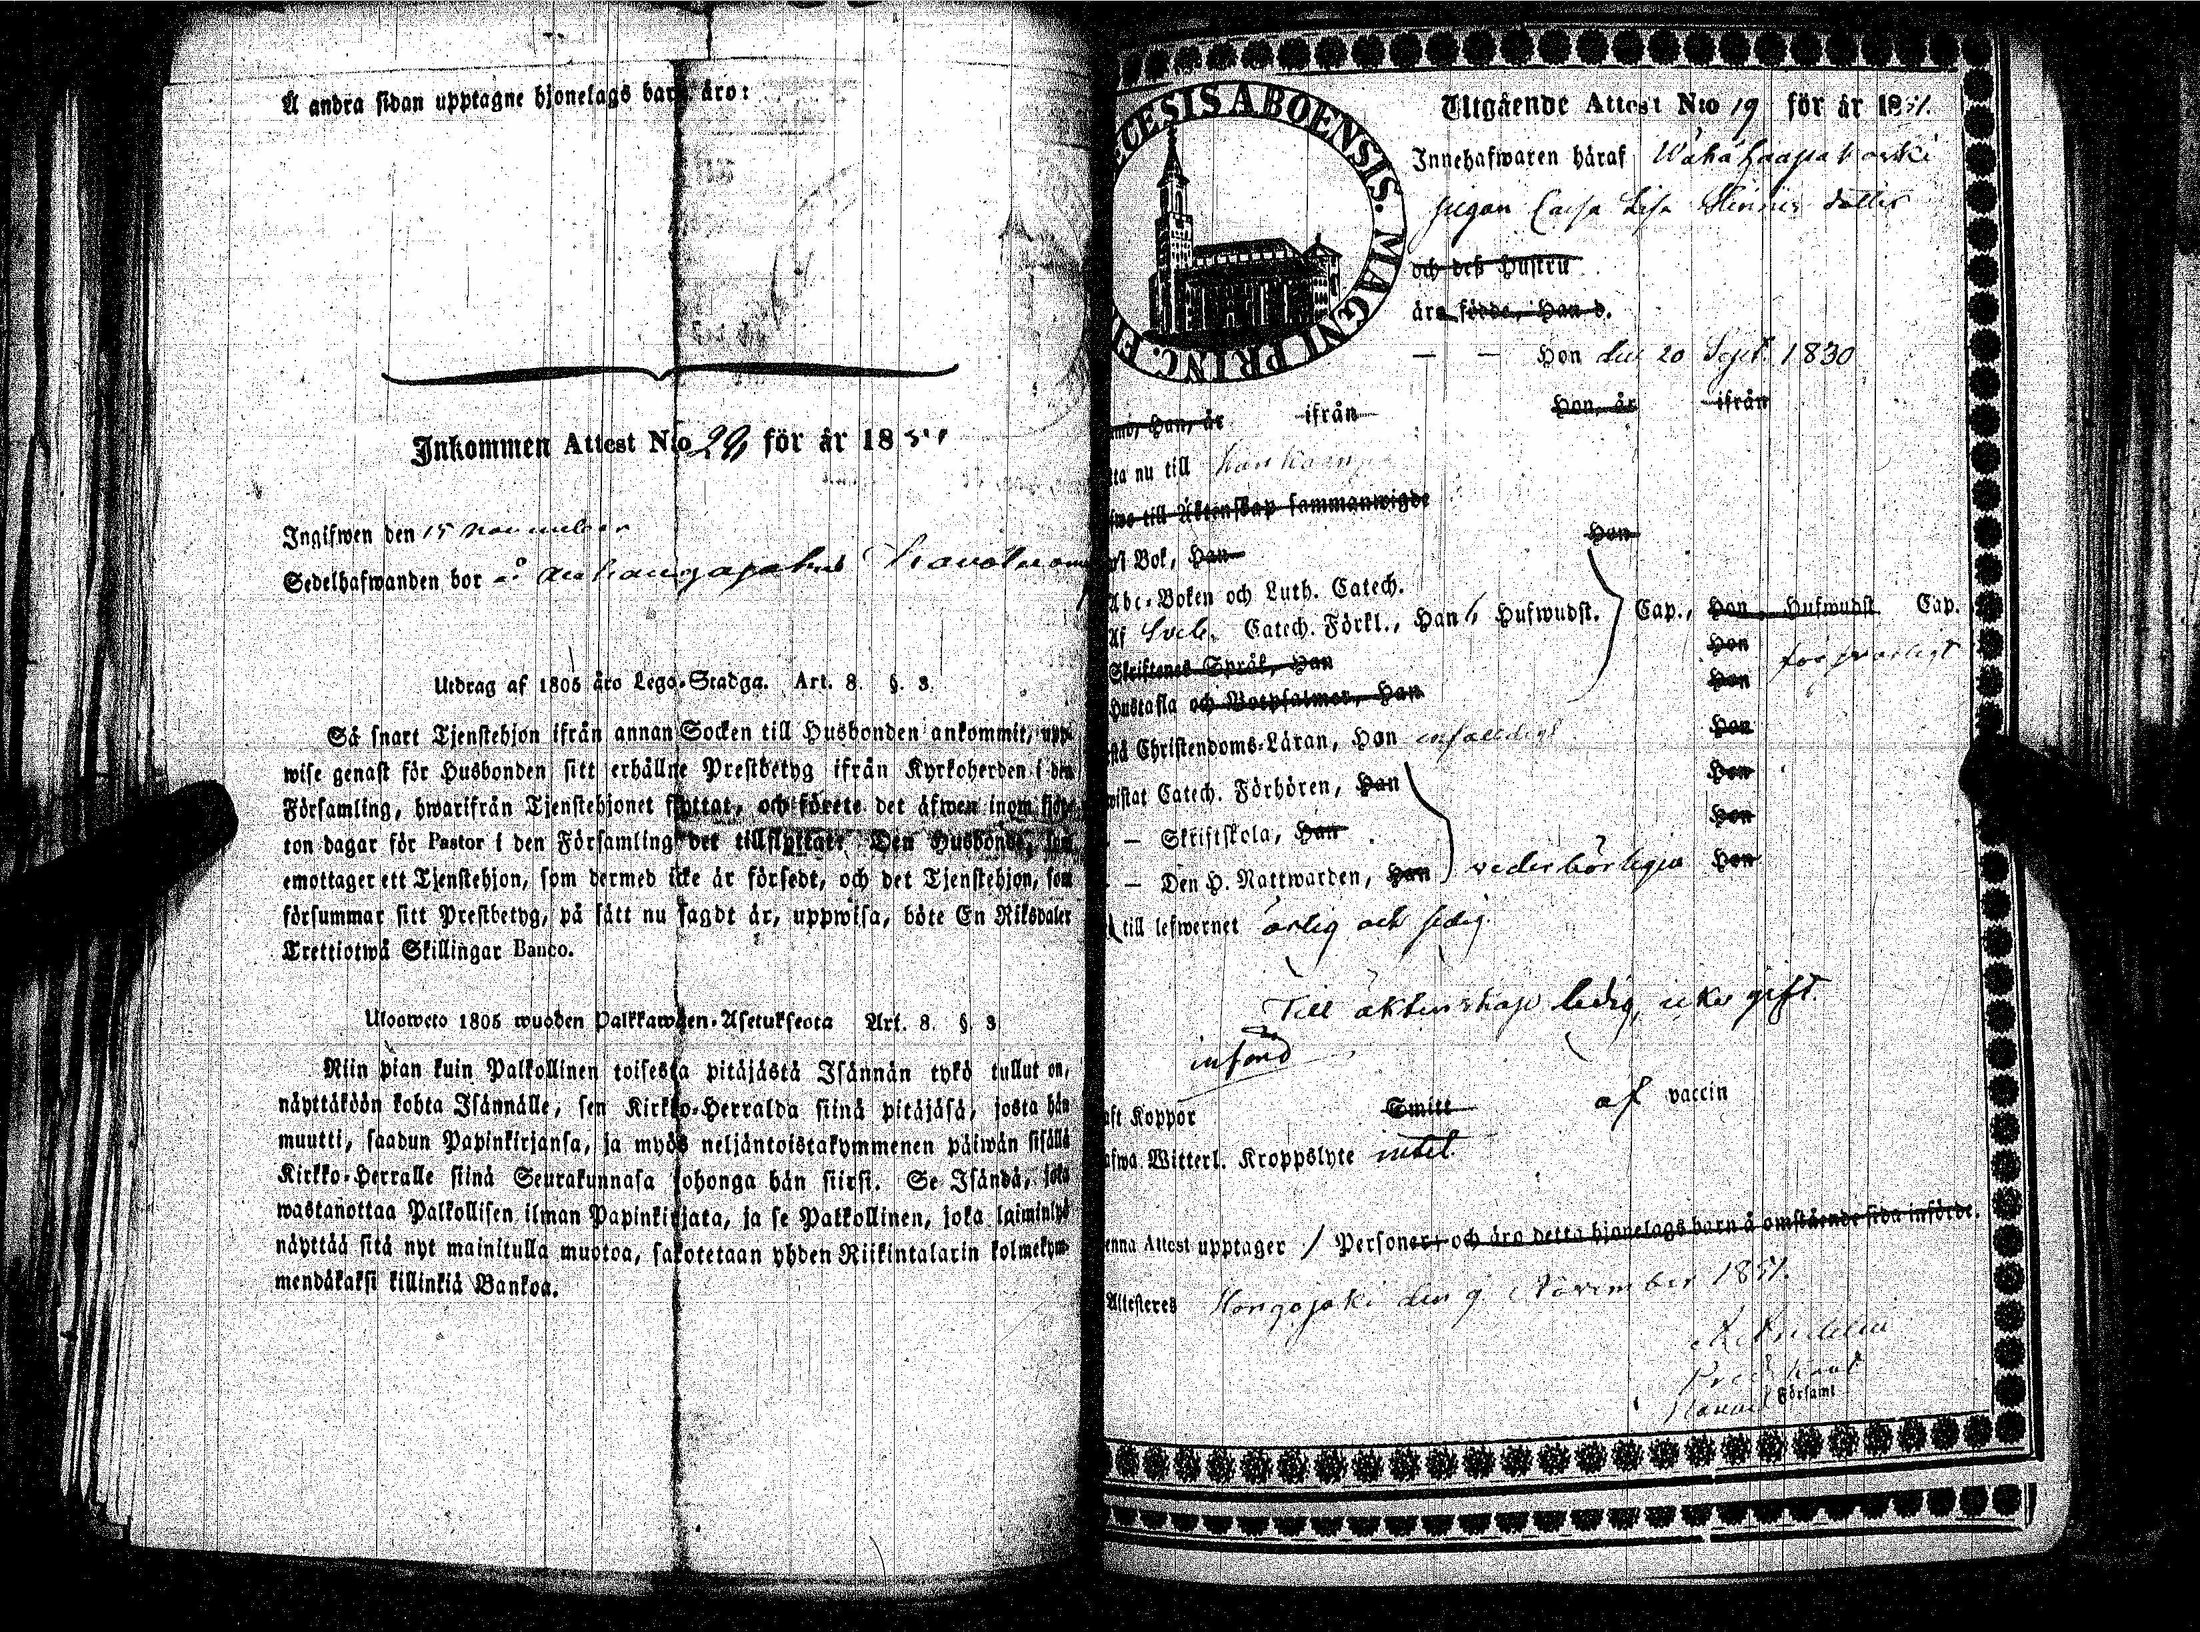 Å andra sidan upptagne hjonelags barn äro:
Inkommen Attest N:o 28 för år 1851
Ingifwen den 15 november
Sedelhafwanden bor å
Utdrag af 1805 åro Lego-Stadga. Art. 8. §. 3.
Så snart Tjenstehjon ifrån annan Socken till Husbonden ankommit, upp-
wise genast för Husbonden sitt erhållne Prestbetyg ifrån Kyrkoherden i den
Församling, hwarifrån Tjenstehjonet flyttat, och förete det äfwen inom fjor-
ton dagar för Pastor i den Församling det tillflyttat. Den Husbonde, som
emottager ett Tjenstehjon, som dermed icke är försedt, och det Tjenstehjon, som
försummar sitt Prestbetyg, på sätt nu sagdt är, uppwisa, böte En Riksdaler
Trettiotwå Skillingar Banco.
Ulosweto 1805 wuoden Palkkawäen-Asetuksesta Art. 8. §. 3
Niin pian kuin Palkollinen toisesta pitäjästä Isännän tykö tullut on,
näyttäköön kohta Isännälle, sen Kirkko-Herralda siinä pitäjäsä, josta hän
muutti, saadun Papinkirjansa, ja myös neljäntoistakymmenen päiwän sisällä
Kirkko-Herralle siinä Seurakunnasa johonga hän siirsi. Se Isändä, joka
wastanottaa Palkollisen ilman Papinkirjata, ja se Palkollinen, joka laiminlyö
näyttää sitä nyt mainitulla muotoa, sakotetaan yhden Riikintalarin kolmekym-
mendäkaksi killinkiä Bankoa.
ECESIS ABOENSIS. MAGNI PRINC. F
Utgående Attest N:o 19 för år 1851.
Innehafwaren häraf
pigan Caisa Lisa dotter
och deß Hustru
äro födde, Han d.
— — Hon den 20 Sept. 1830
Han, är ifrån Hon, är ifrån
nu till
till Äktenskap sammanwigde
Bok, Han Hon
Abc-Boken och Luth. Catech.
Af Sveb. Catech. Förkl., Han 6 Hufwudst. Cap., Hon Hufwudst. Cap.
Skriftenes Språk, Han Hon försvarligt
Hustafla och Botpsalmer, Han Hon
Christendoms-Läran, Han Hon
Catech. Förhören, Han Hon
— Skriftskola, Han Hon
— Den H. Nattwarden, Han vederbörligen Hon
till lefwernet ärlig och sedig.
Till äktenskap ledig, icke gift.
införd
Koppor Smitt af vaccin
Witterl. Kroppslyte intet.
enna Attest upptager 1 Personer och äro detta hjonelags barn å omstående sida införde.
Attesteres Hongojoki den 9 November 1851.
Församl